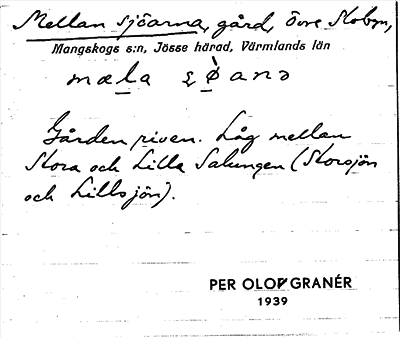 Mellan sjöarna, gård, Övre Skobyn,
Mangskogs s:n, Jösse härad, Värmlands län
Gården riven. Låg mellan
Stora och Lilla Salungen (Storsjön
och Lillsjön).
PER OLOF GRANÉR
1939